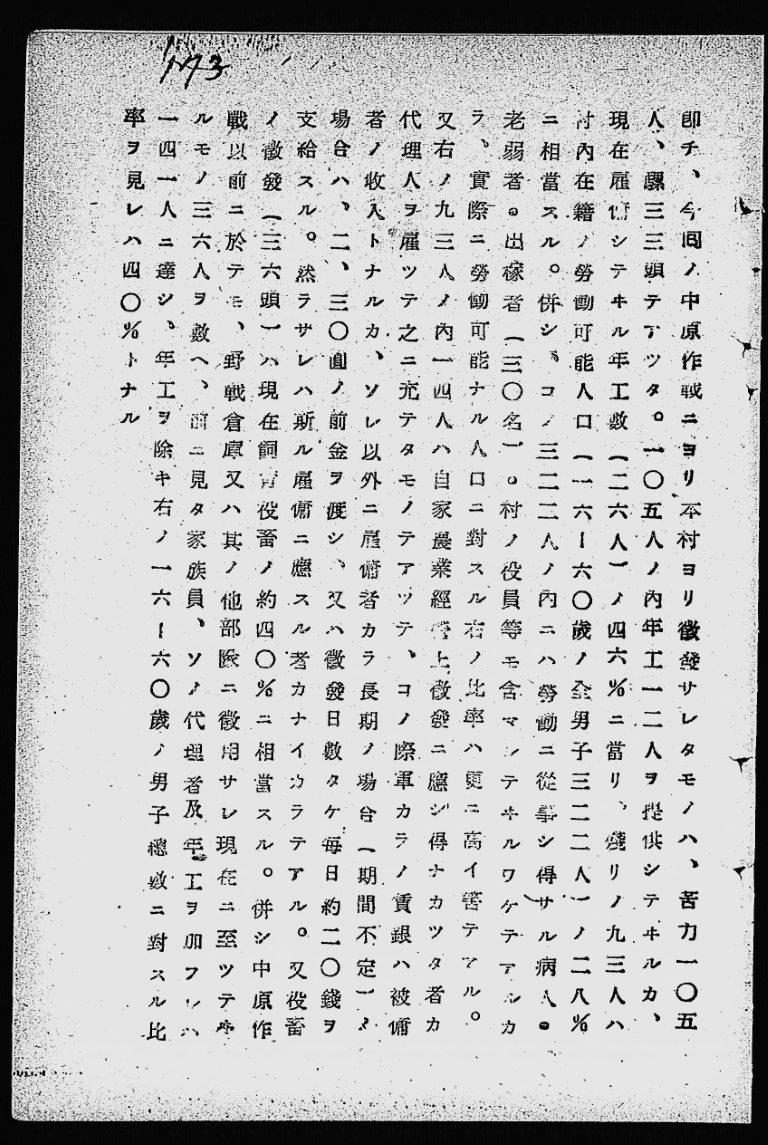 1173
即チ、今囘ノ中原作戰ニヨリ本村ヨリ徵發サレタモノハ、苦力一〇五
人、騾三三頭テアツタ。一〇五人ノ內年工一二人ヲ提供シテヰルカ、
現在雇傭シテヰル年工數(二六人)ノ四六%ニ當リ、殘リノ九三人ハ
村內在籍ノ勞働可能人口(一六ー六〇歲ノ全男子三二二人)ノ二八%
ニ相當スル。併シ、コノ三二二人ノ內ニハ勞働ニ從事シ得サル病人。
老弱者。出稼者(三〇名)。村ノ役員等モ含マレテヰルワケテアルカ
ラ、實際ニ勞働可能ナル人口ニ對スル右ノ比率ハ更ニ高イ筈テアル。
又右ノ九三人ノ內一四人ハ自家農業經營上徵發ニ應シ得ナカツタ者カ
代理人ヲ雇ツテ之ニ充テタモノテアツテ、コノ際軍カラノ賃銀ハ被傭
者ノ收入トナルカ、ソレ以外ニ雇傭者カラ長期ノ場合(期間不定)ノ
場合ハ、二、三〇圓ノ前金ヲ渡シ、又ハ徵發日數タケ每日約二〇錢ヲ
支給スル。然ラサレハ斯ル雇傭ニ應スル者カナイカラテアル。又役畜
ノ徵發(三六頭)ハ現在飼育役畜ノ約四〇%ニ相當スル。併シ中原作
戰以前ニ於テモ、野戰倉庫又ハ其ノ他部隊ニ徵用サレ現在ニ至ツテヰ
ルモノ三六人ヲ數ヘ、前ニ見タ家族員、ソノ代理者及年工ヲ加フレハ
一四一人ニ達シ、年工ヲ除キ右ノ一六ー六〇歲ノ男子總數ニ對スル比
率ヲ見レハ四〇%トナル